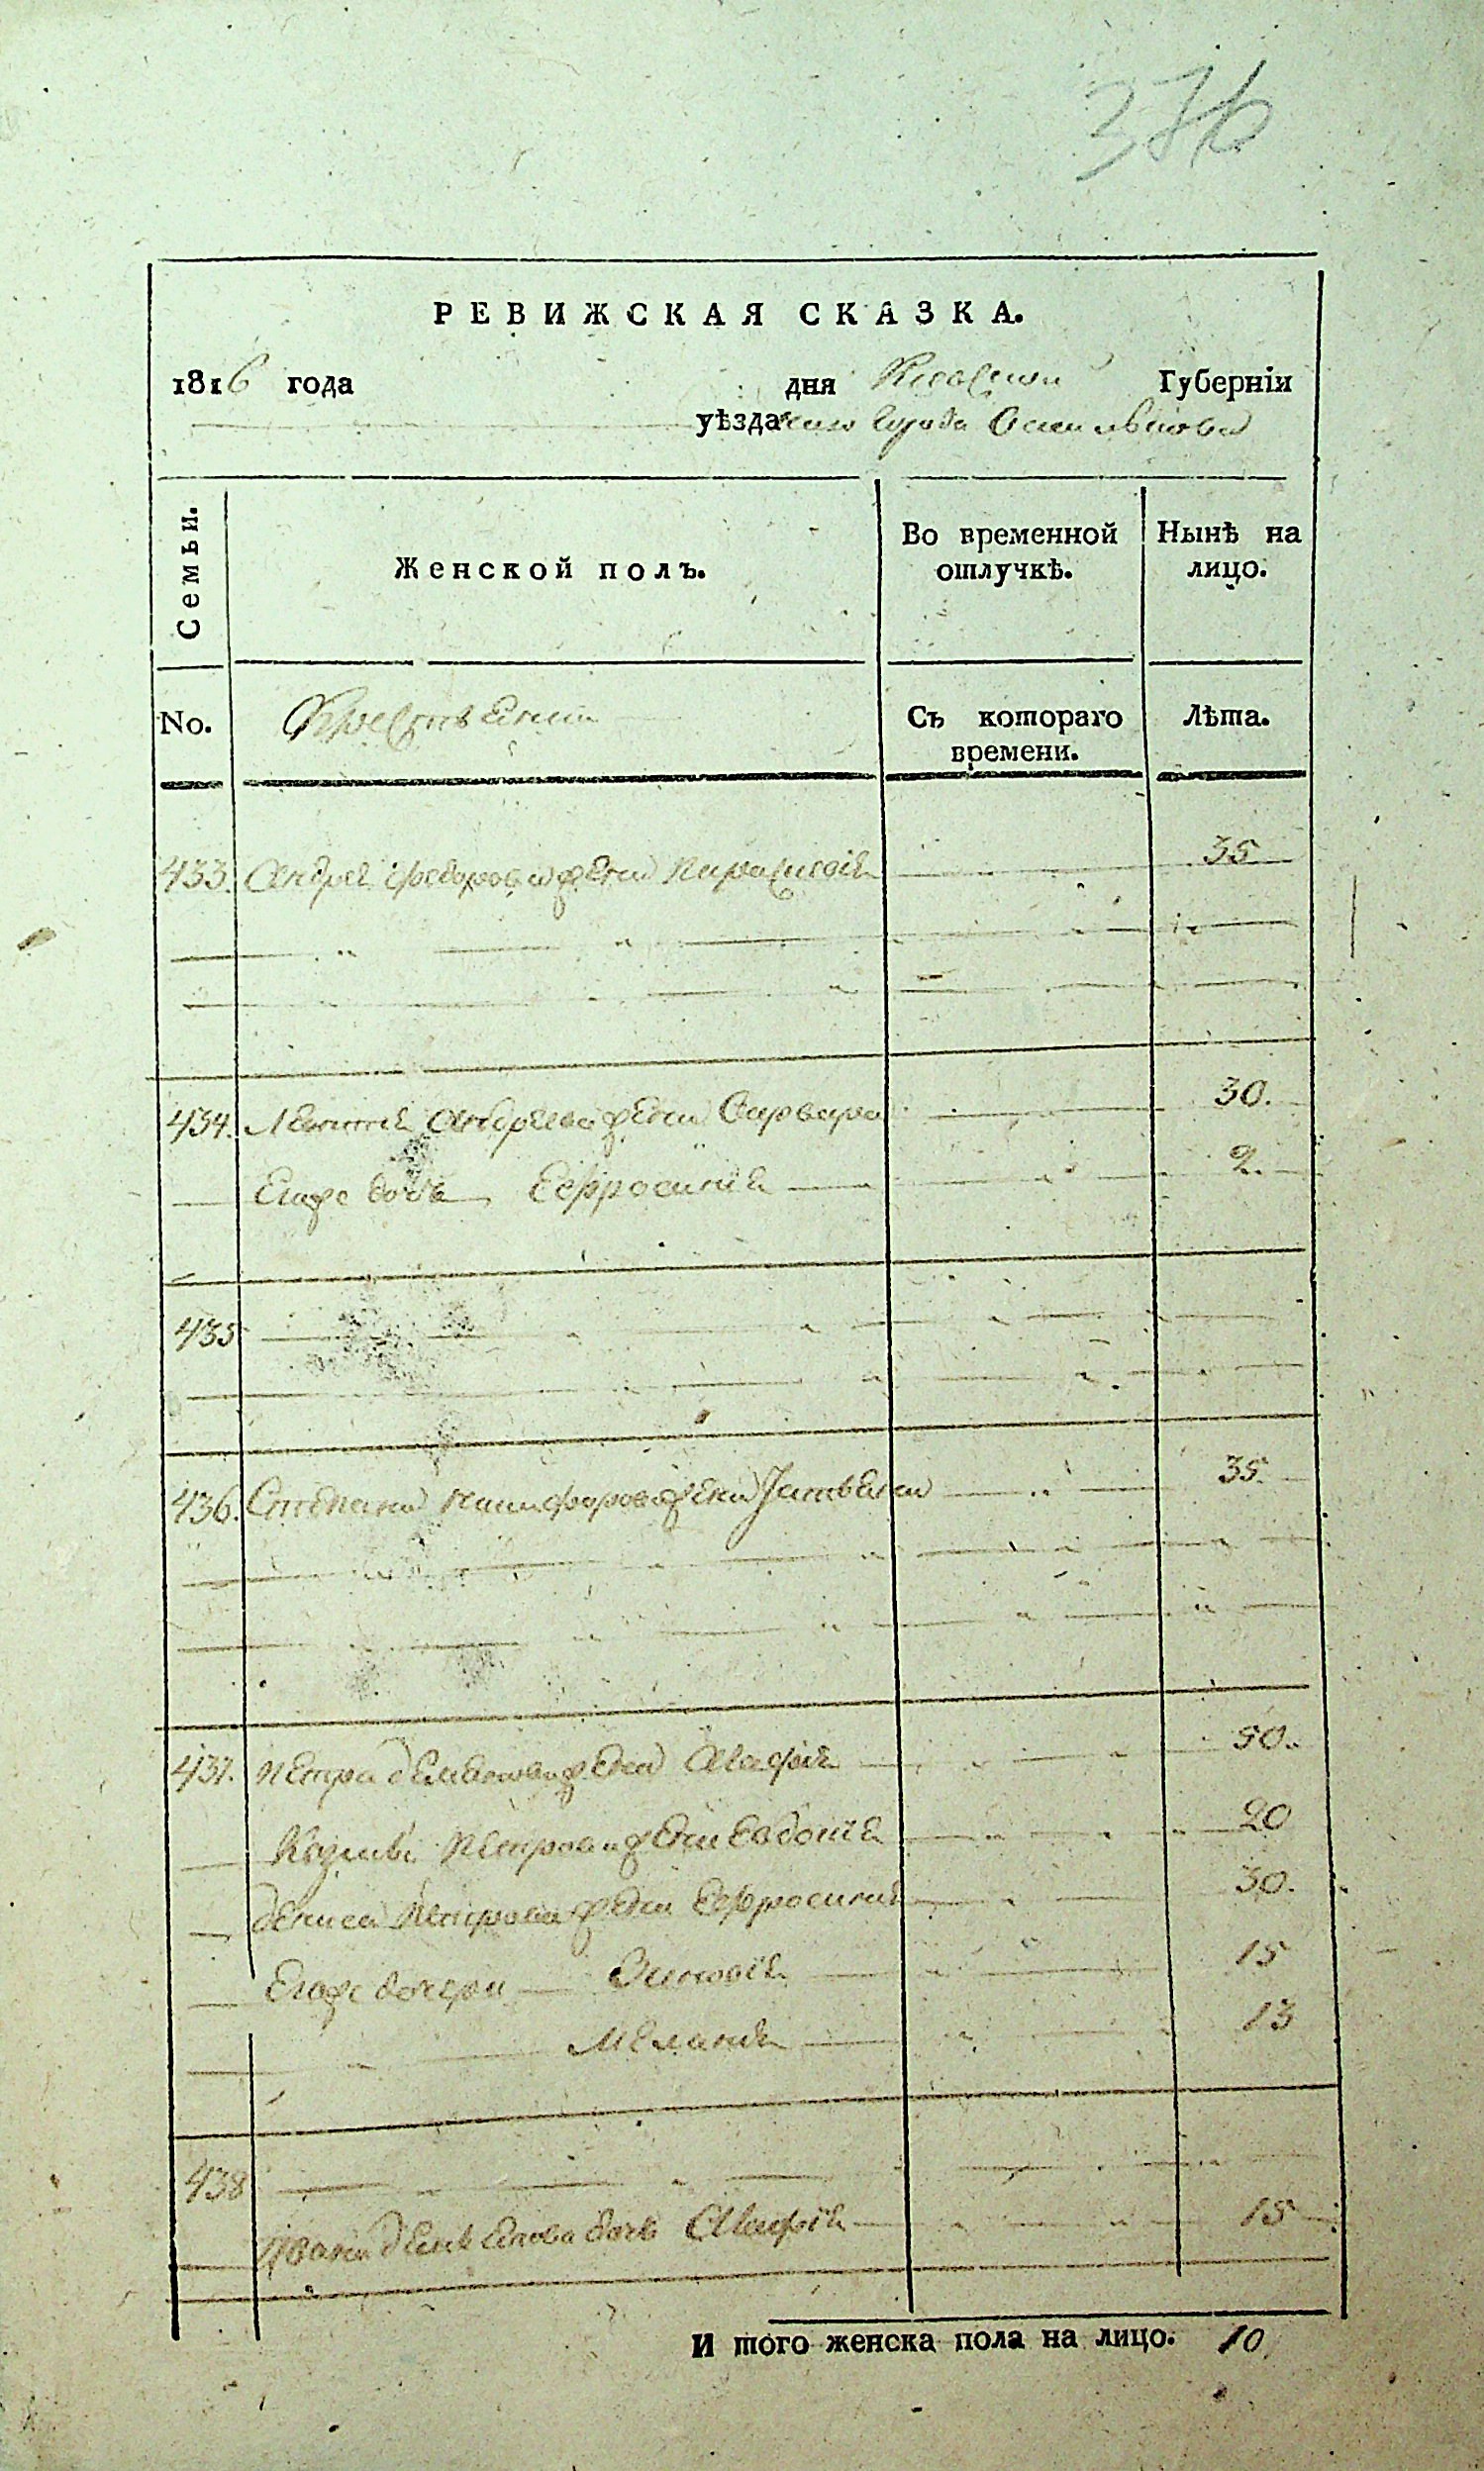 376
РЕВИЖСКАЯ СКАЗКА.
1816 года дня Киевской Губерніи
уѣзда города
Семьи.
Женской полъ.
Во временной отлучкѣ.
Нынѣ на лицо.
No.
Съ котораго времени.
Лѣта.
433. Андрея Федорова жена Параскевія 35
434. Леонтия Андреева жена Варвара 30.
Егоже дочь Ефросинія 2.
435
436. Степана Никифорова жена 35.
437. Петра жена Агафія 50.
Козмы Петрова жена Евдокія 20
Дениса Петрова жена Ефросинія 30.
Егоже дочери Зиновія 15
Меланія 13
438
Ивана дочь Агафія 15
И того женска пола на лицо. 10